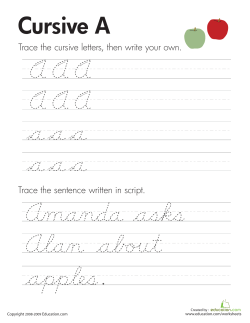 Cursive A
Trace the cursive letters, then write your own.
A A A
A A A
a a a
a a a
Trace the sentence written in script.
Amanda asks
Alan about
apples.
Copyright 2008-2009 Education.com
Created by :
education.com
www.education.com/worksheets